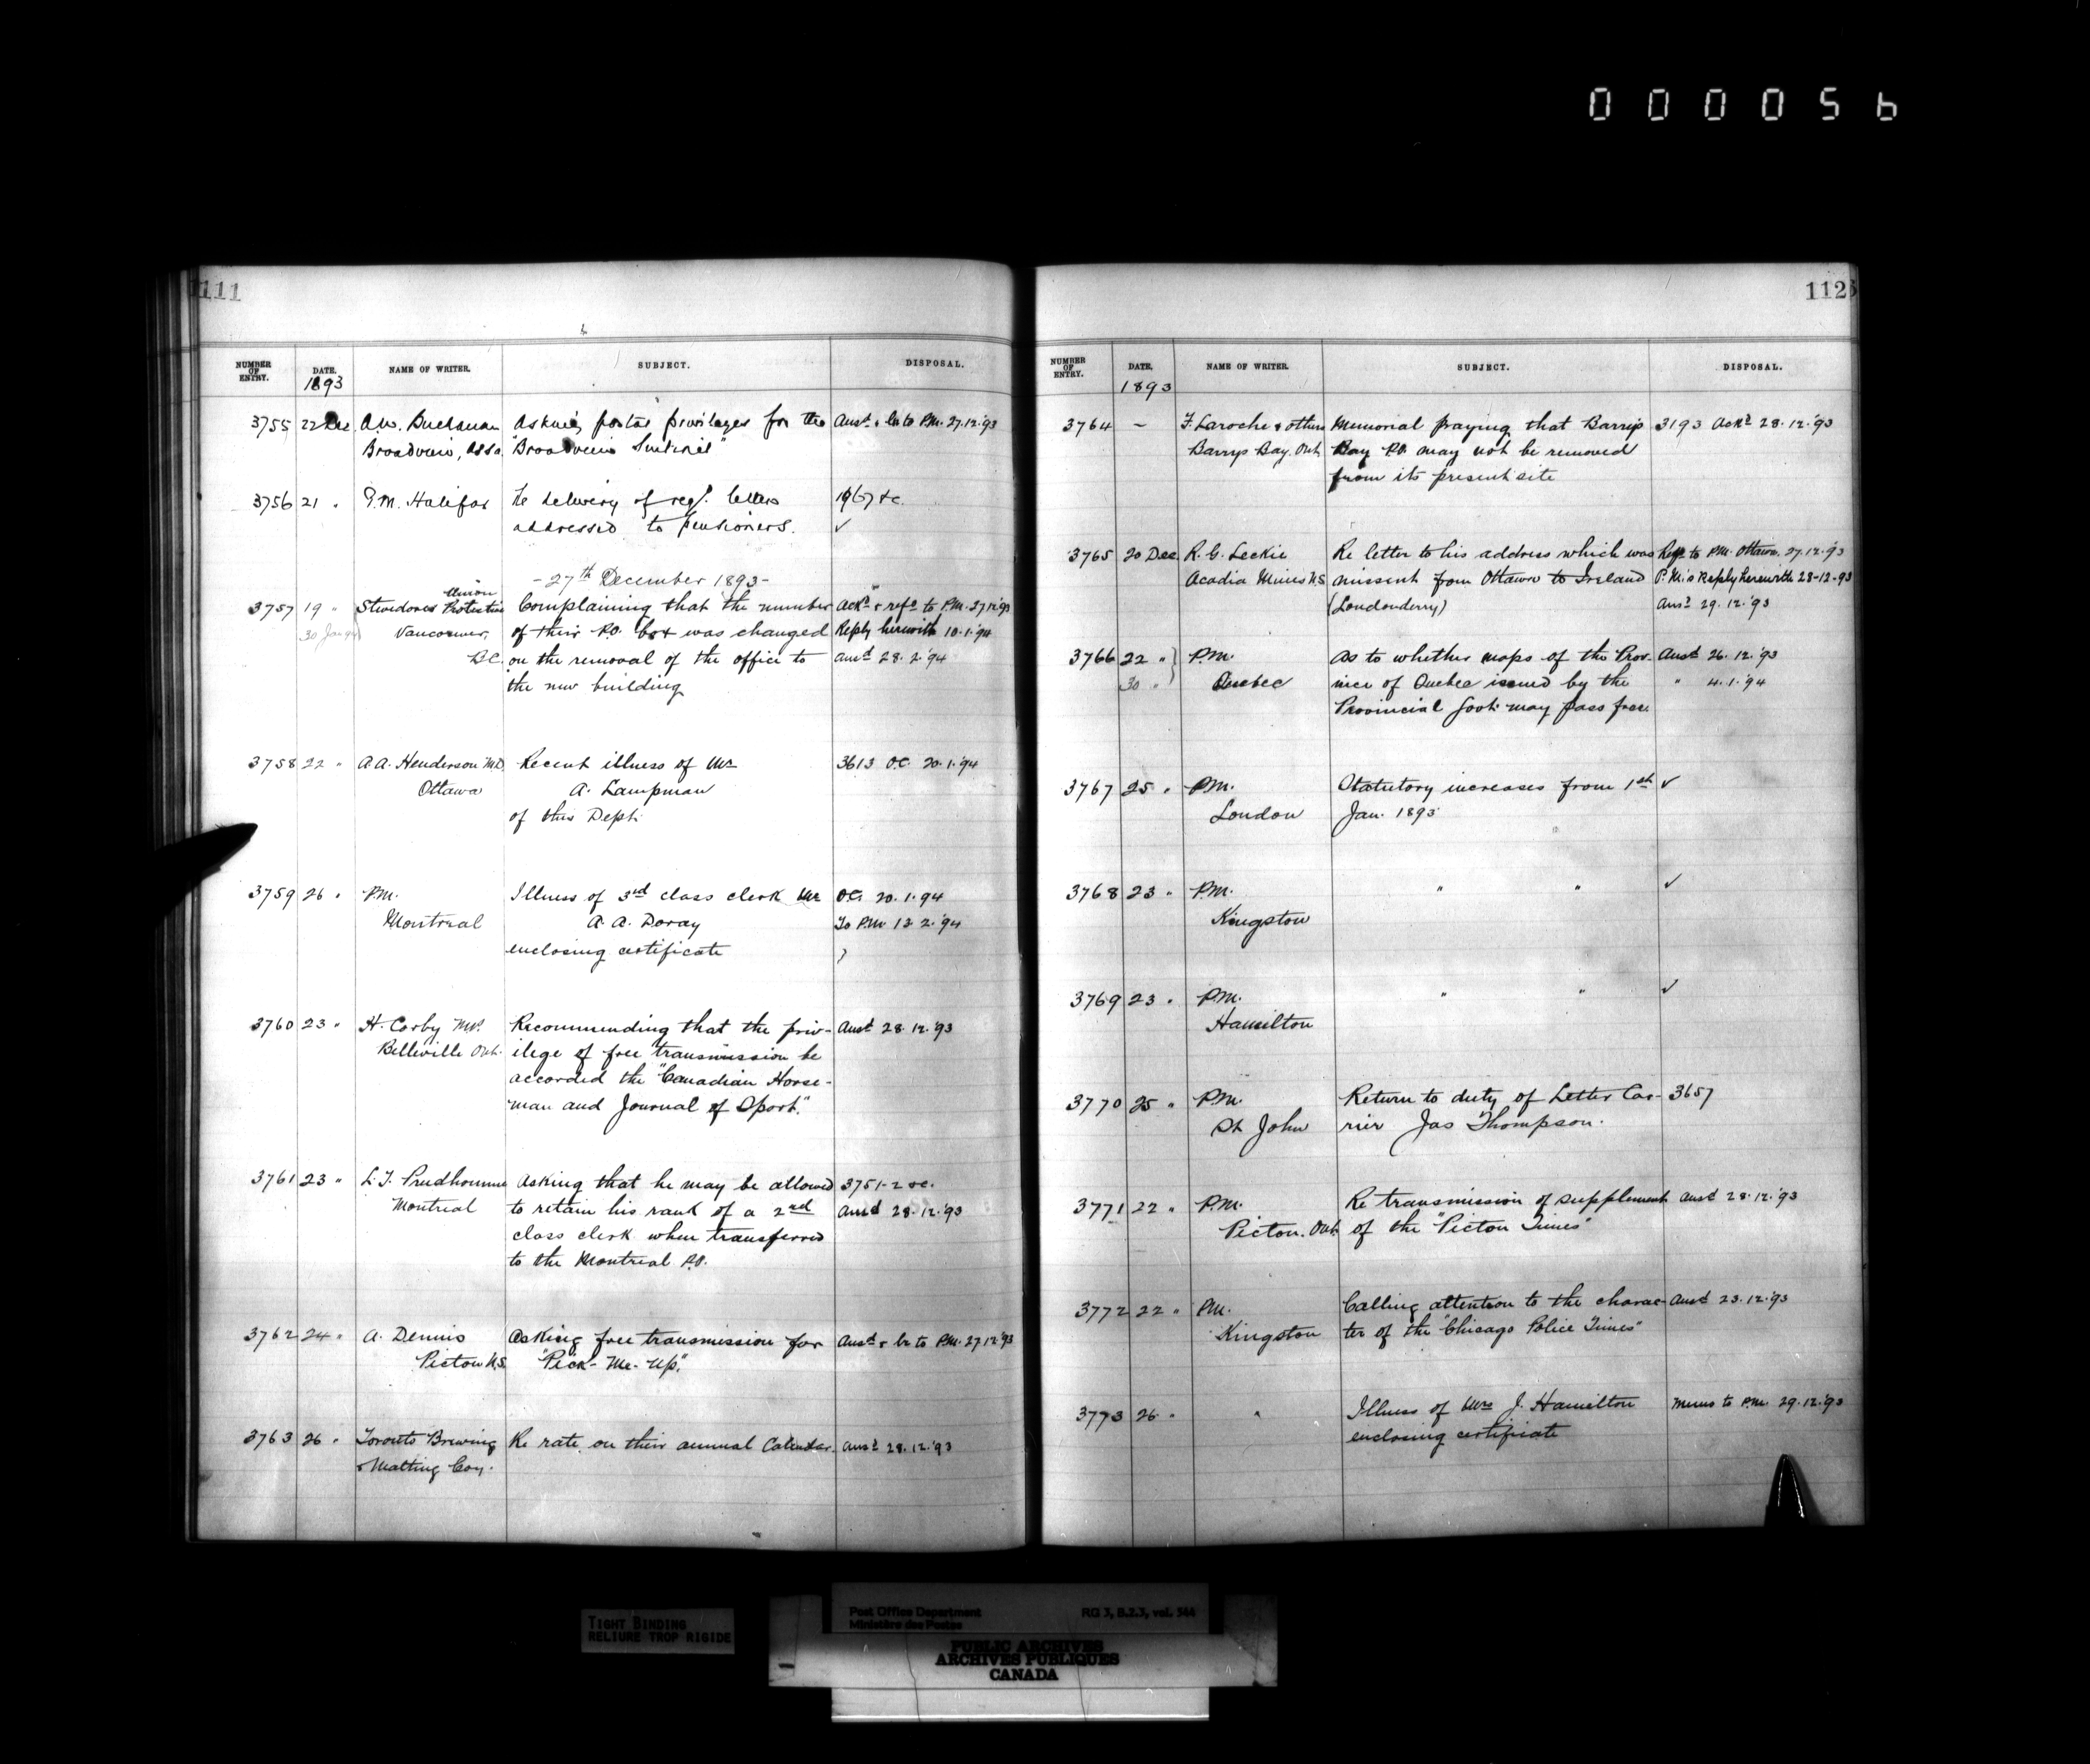 0000056
111
NUMBER OF ENTRY. DATE. NAME OF WRITER. SUBJECT. DISPOSAL.
1893
3755 22 Dec A.W. Buchanan Asking postal privileges for the Ansd. & lr to P.M. 27.12.'93
Broadview, Assa. "Broadview Sentinel"
3756 21 " P.M. Halifax Re delivery of regd. letters 1967 &c.
addressed to pensioners. ✓
- 27th December 1893 -
Union
3757 19 " Stevedores Protective Complaining that the number Ackd & refd to P.M. 27.12.'93
30 Jan 94 Vancouver, of their P.O. box was changed Reply herewith 10.1.'94
B.C. on the removal of the office to ansd 28.2.'94
the new building
3758 22 " A.A. Henderson M.D. Recent illness of Mr 3613 O.C. 20.1.'94
Ottawa A. Lampman
of this Dept.
3759 26 " P.M. Illness of 3rd class clerk Mr O.C. 20.1.94
Montreal A.A. Doray To P.M. 13.2.'94
enclosing certificate
3760 23 " H. Corby M.P. Recommending that the priv- Ansd 28.12.'93
Belleville Ont. ilege of free transmission be
accorded the "Canadian Horse-
man and Journal of Sport."
3761 23 " L.J. Prudhomme Asking that he may be allowed 3751-2 &c.
Montreal to retain his rank of a 2nd Ansd 28.12.'93
class clerk when transferred
to the Montreal P.O.
3762 24 " A. Dennis Asking free transmission for Ansd & lr to P.M. 27.12.'93
Pictou N.S. "Pick-Me-Up."
3763 26 " Toronto Brewing Re rate on their annual Calendar. Ansd 28.12.'93
& Malting Coy.
112
NUMBER OF ENTRY. DATE. NAME OF WRITER. SUBJECT. DISPOSAL.
1893
3764 - F. Laroche & others Memorial praying that Barrys 3193 Ackd 28.12.'93
Barrys Bay. Ont. Bay P.O. may not be removed
from its present site
3765 20 Dec. R.G. Leckie Re letter to his address which was Refd. to P.M. Ottawa. 27.12.'93
Acadia Mines N.S. missent from Ottawa to Ireland P.M.'s Reply herewith 28-12-93
(Londonderry) Ansd 29.12.'93
3766 22 " P.M. As to whether maps of the Prov- Ansd 26.12.'93
30 " Quebec ince of Quebec issued by the " 4.1.'94
Provincial Govt. may pass free.
3767 25 " P.M. Statutory increases from 1st ✓
London Jan. 1893
3768 23 " P.M. " " ✓
Kingston
3769 23 " P.M. " " ✓
Hamilton
3770 25 " P.M. Return to duty of Letter Car- 3657
St John rier Jas Thompson.
3771 22 " P.M. Re transmission of supplement Ansd 28.12.'93
Picton. Ont. of the "Picton Times"
3772 22 " P.M. Calling attention to the charac- Ansd 23.12.'93
Kingston ter of the "Chicago Police Times"
3773 26 " " Illness of Mr J. Hamilton Memo to P.M. 29.12.'93
enclosing certificate
TIGHT BINDING
RELIURE TROP RIGIDE
Post Office Department RG 3, B.2.3, vol. 544
Ministère des Postes
PUBLIC ARCHIVES
ARCHIVES PUBLIQUES
CANADA